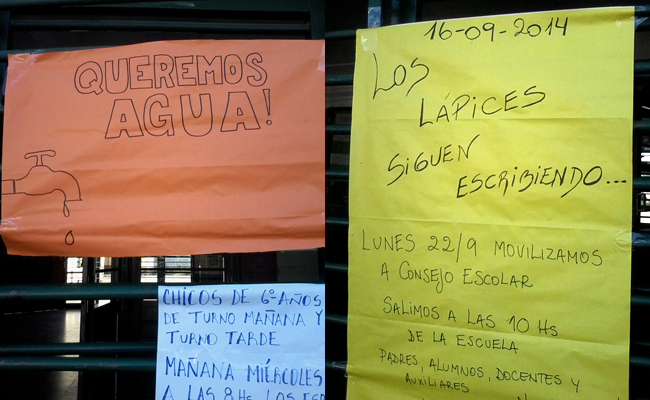 QUEREMOS
AGUA!
CHICOS DE 6º AÑOS
DE TURNO MAÑANA Y
TURNO TARDE
MAÑANA MIÉRCOLES
A LAS 8 HS LOS
16-09-2014
LOS
LÁPICES
SIGUEN
ESCRIBIENDO...
LUNES 22/9 MOVILIZAMOS
A CONSEJO ESCOLAR
SALIMOS A LAS 10 HS
DE LA ESCUELA
PADRES, ALUMNOS, DOCENTES Y
AUXILIARES